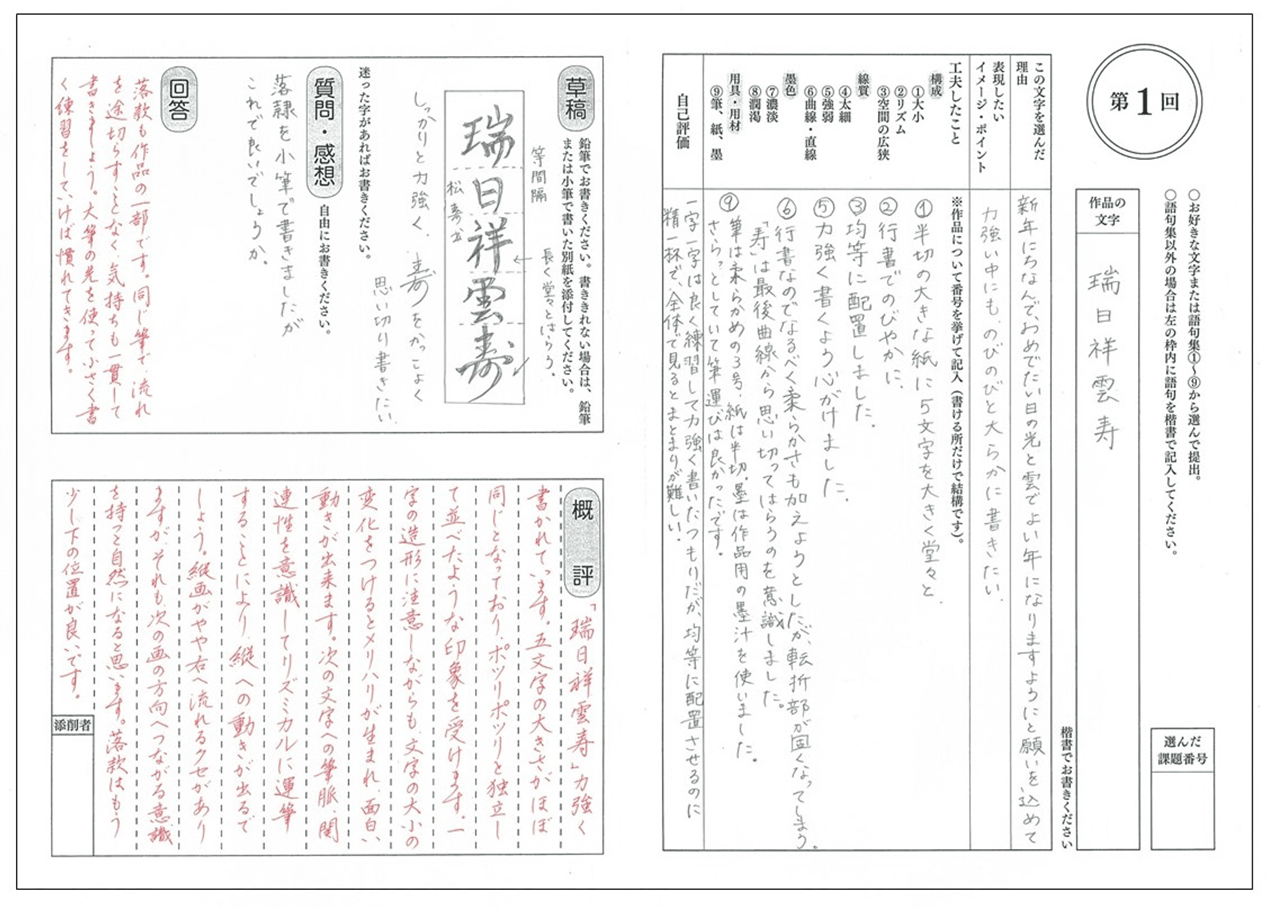 第1回
○お好きな文字または語句集①〜⑨から選んで提出。
○語句集以外の場合は左の枠内に語句を楷書で記入してください。
選んだ
課題番号
作品の
文字
瑞日祥雲寿
楷書でお書きください
この文字を選んだ
理由
新年にちなんで、おめでたい日の光と雲でよい年になりますようにと願いを込めて
表現したい
イメージ・ポイント
力強い中にも、のびのびと大らかに書きたい、
工夫したこと
※作品について番号を挙げて記入(書ける所だけで結構です)。
構成
①大小
②リズム
③空間の広狭
線質
④太細
⑤強弱
⑥曲線・直線
墨色
⑦濃淡
⑧潤渇
用具・用材
⑨筆、紙、墨
①半切の大きな紙に5文字を大きく堂々と、
②行書でのびやかに、
③均等に配置しました、
⑤力強く書くよう心がけました、
⑥行書なのでなるべく柔らかさも加えようとしたが転折部が固くなってしまう。
「寿」は最後曲線から思い切ってはらうのを意識しました。
⑨筆は柔らかめの3号、紙は半切、墨は作品用の墨汁を使いました。
さらっとしていて筆運びは良かったです。
自己評価
一字一字は良く練習して力強く書いたつもりだが、均等に配置させるのに
精一杯で、全体で見るとまとまりが難しい。
草稿
鉛筆でお書きください。書ききれない場合は、鉛筆
または小筆で書いた別紙を添付してください。
長く堂々とはらう、
等間隔
瑞日祥雲寿
しっかりと力強く、寿をかっこよく
思い切り書きたい
迷った字があればお書きください。
質問・感想
自由にお書きください。
落隷を小筆で書きましたが
これで良いでしょうか。
回答
落款も作品の一部です。同じ筆で、流れ
を途切らすことなく、気持ちも一貫して
書きましょう。大筆の先を使って小さく書
く練習をしていけば慣れてきます。
概評
「瑞日祥雲寿」力強く
書かれています。五文字の大きさがほぼ
同じとなっており、ポツリポツリと独立し
て並べたような印象を受けます。一
字の造形に注意しながらも、文字の大小の
変化をつけるとメリハリが生まれ、面白い
動きが出来ます。次の文字への筆脈、関
連性を意識してリズミカルに運筆
することにより、縦への動きが出るで
しょう。縦画がやや右へ流れるクセがあり
ますが、それも次の画の方向へつながる意識
を持つと自然になると思います。落款はもう
少し下の位置が良いです。
添削者